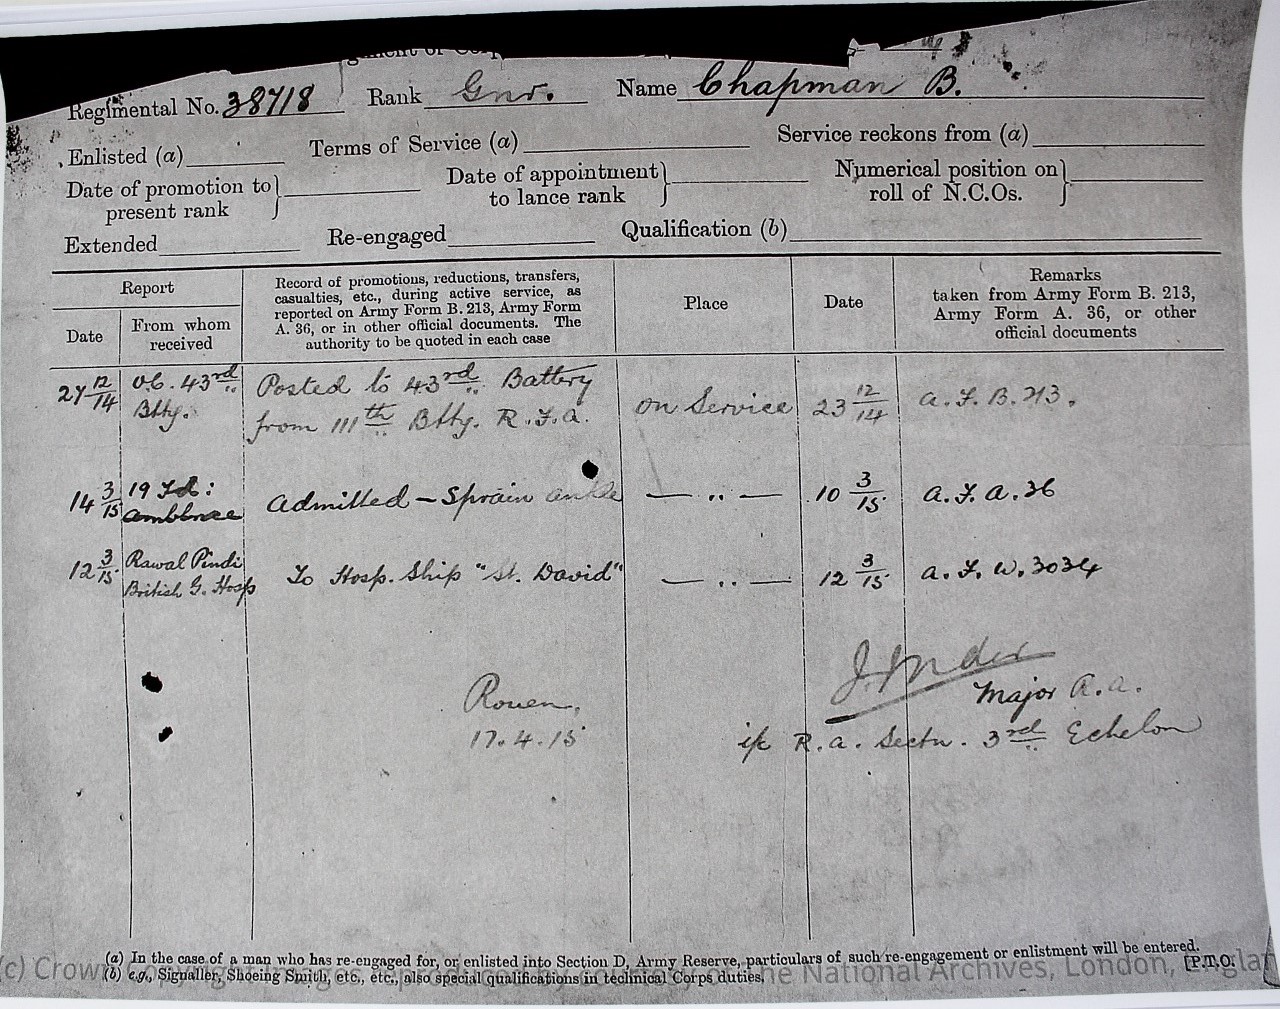 Regimental No. 38718 Rank Gnr. Name Chapman B.
Enlisted (a) Terms of Service (a) Service reckons from (a)
Date of promotion to present rank } Date of appointment to lance rank } Numerical position on roll of N.C.Os. }
Extended Re-engaged Qualification (b)
Report
Date
From whom
received
Record of promotions, reductions, transfers,
casualties, etc., during active service, as
reported on Army Form B. 213, Army Form
A. 36, or in other official documents. The
authority to be quoted in each case
Place
Date
Remarks
taken from Army Form B. 213,
Army Form A. 36, or other
official documents
27 12/14 O.C. 43rd Bty. Posted to 43rd Battery on Service 23 12/14 A.F.B. 213.
from 111th Btty. R.F.A.
14 3/15 19 Fd: Ambbnce Admitted - Sprain ankle — .. — 10 3/15 A.F.A. 36
12 3/15 Rawal Pindi British G. Hosp To Hosp. Ship "St. David" — .. — 12 3/15 A.F.W. 3034
Rouen,
17.4.15
Major R.A.
R.A. Sectn. 3rd Echelon
(a) In the case of a man who has re-engaged for, or enlisted into Section D, Army Reserve, particulars of such re-engagement or enlistment will be entered.
(b) e.g., Signaller, Shoeing Smith, etc., etc., also special qualifications in technical Corps duties.
[P.T.O.
(c) Crow the National Archives, London, Englan